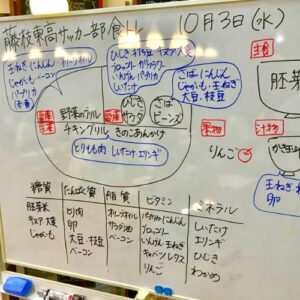 藤枝東高サッカー部食トレ 10月3日(水)
玉ねぎ にんにん オリーブオイル
じゃがいも ベーコン
パプリカ
ひじき 枝豆 キヌア 大麦
ブロッコリー
いんげん パプリカ
さば にんじん
じゃがいも 玉ねぎ
大豆・枝豆
主食
胚芽
野菜のグリル
チキングリル きのこあんかけ
ひじき
サラダ
さば
ビーンズ
とりもも肉 しいたけ エリンギ
果物
りんご
汁物
かき玉
玉ねぎ
卵
糖質 たんぱく質 脂質 ビタミン ミネラル
胚芽米 とり肉 オリーブオイル パプリカ にんじん しいたけ
キヌア・大麦 卵 サラダ油 ブロッコリー エリンギ
じゃがいも 大豆・枝豆 ベーコン いんげん 玉ねぎ ひじき
ベーコン キャベツ レタス わかめ
りんご